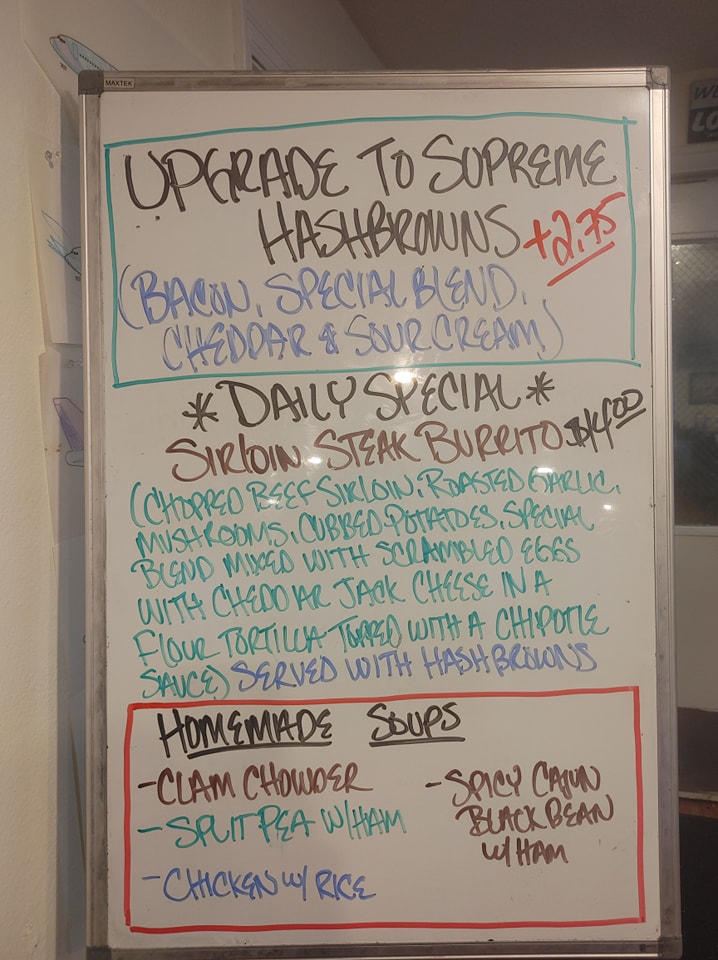 MAXTEK
WE
LO
UPGRADE TO SUPREME
HASHBROWNS +2.75
(BACON, SPECIAL BLEND,
CHEDDAR & SOUR CREAM)
*DAILY SPECIAL*
SIRLOIN STEAK BURRITO $14.00
(CHOPPED BEEF SIRLOIN, ROASTED GARLIC,
MUSHROOMS, CUBBED POTATOES, SPECIAL
BLEND MIXED WITH SCRAMBLED EGGS
WITH CHEDDAR JACK CHEESE IN A
FLOUR TORTILLA TOPPED WITH A CHIPOTLE
SAUCE) SERVED WITH HASHBROWNS
HOMEMADE SOUPS
-CLAM CHOWDER
-SPLIT PEA W/HAM
-CHICKEN W/ RICE
-SPICY CAJUN
BLACK BEAN
W/ HAM